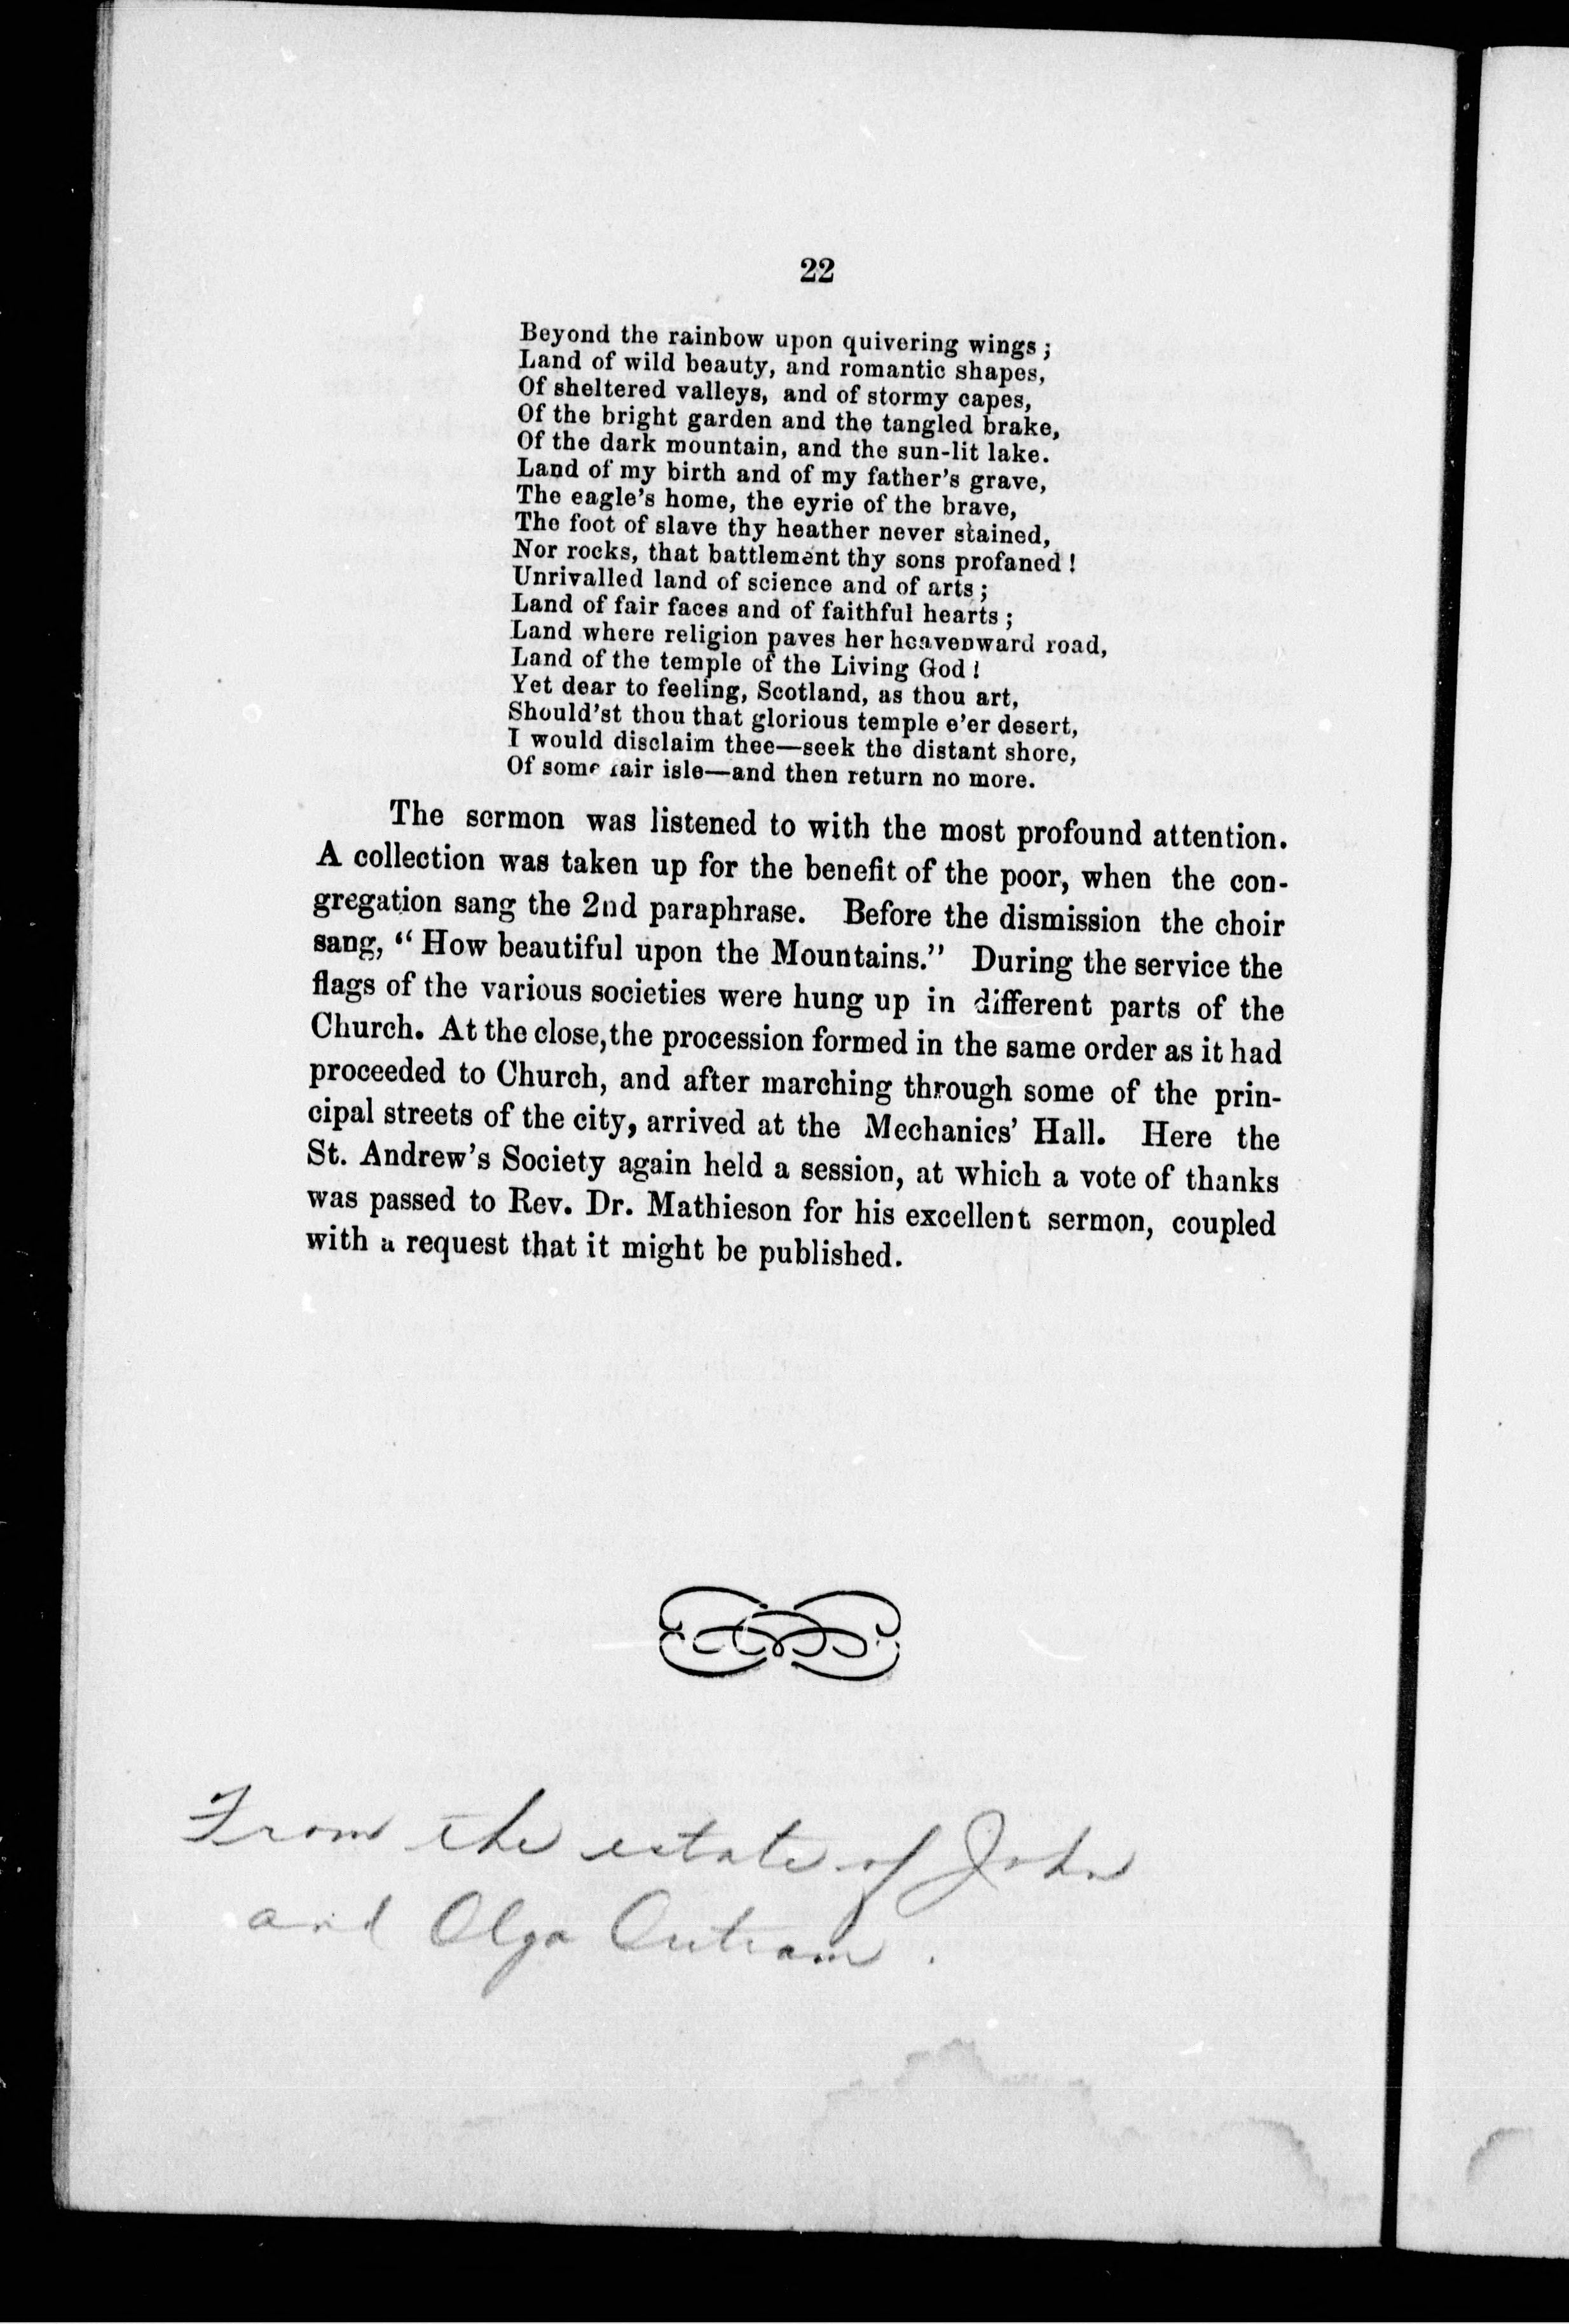 22
Beyond the rainbow upon quivering wings;
Land of wild beauty, and romantic shapes,
Of sheltered valleys, and of stormy capes,
Of the bright garden and the tangled brake,
Of the dark mountain, and the sun-lit lake.
Land of my birth and of my father's grave,
The eagle's home, the eyrie of the brave,
The foot of slave thy heather never stained,
Nor rocks, that battlement thy sons profaned!
Unrivalled land of science and of arts;
Land of fair faces and of faithful hearts;
Land where religion paves her heavenward road,
Land of the temple of the Living God!
Yet dear to feeling, Scotland, as thou art,
Should'st thou that glorious temple e'er desert,
I would disclaim thee—seek the distant shore,
Of some fair isle—and then return no more.
The sermon was listened to with the most profound attention.
A collection was taken up for the benefit of the poor, when the con-
gregation sang the 2nd paraphrase. Before the dismission the choir
sang, "How beautiful upon the Mountains." During the service the
flags of the various societies were hung up in different parts of the
Church. At the close, the procession formed in the same order as it had
proceeded to Church, and after marching through some of the prin-
cipal streets of the city, arrived at the Mechanics' Hall. Here the
St. Andrew's Society again held a session, at which a vote of thanks
was passed to Rev. Dr. Mathieson for his excellent sermon, coupled
with a request that it might be published.
From the estate of John
and Olga Outram.